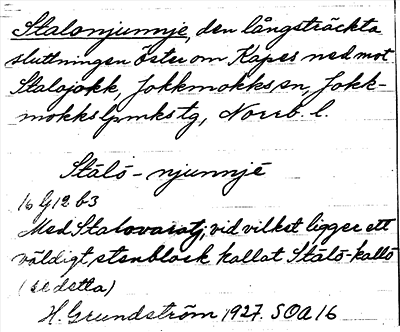 Stalonjunnje, den långsträckta
sluttningen öster om Kapes ned mot
Stalojokk, Jokkmokks sn, Jokk-
mokks lpmks tg, Norrb. l.
Stālō-njunnjē
16 G12 b3
Med Stalovaratj, vid vilket ligger ett
väldigt stenblock kallat Stālō-kallō
(se detta)
H. Grundström 1927. SOA 16